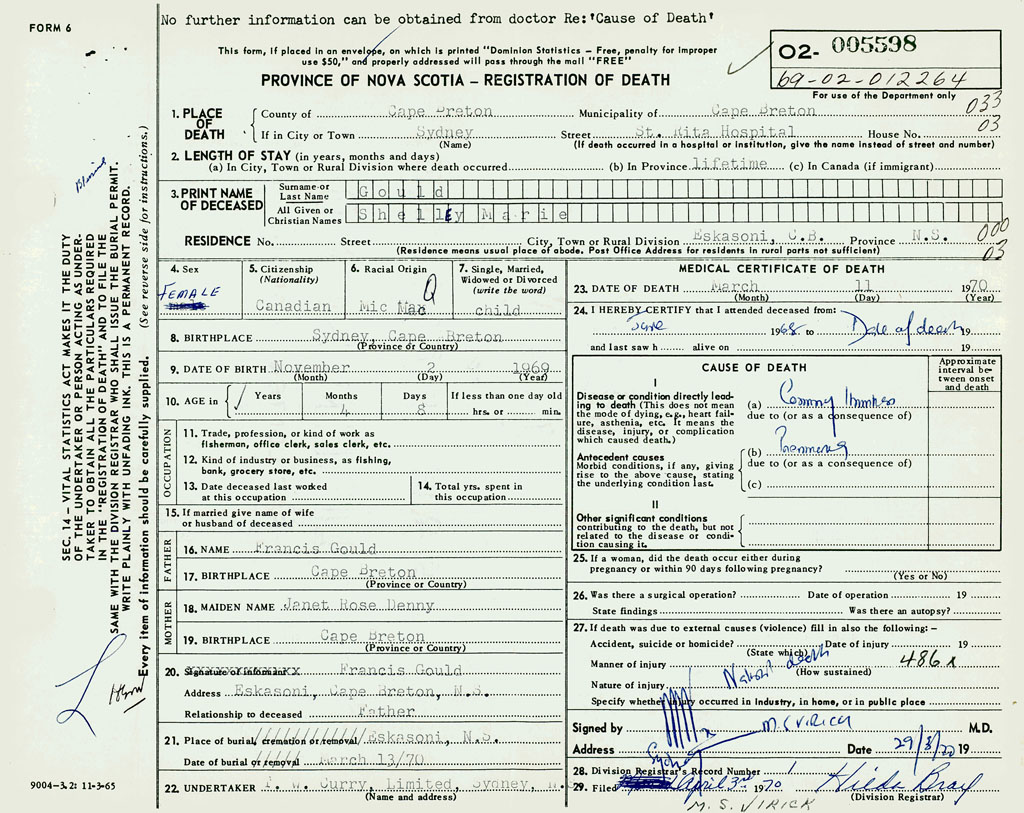 FORM 6
No further information can be obtained from doctor Re:'Cause of Death'
This form, if placed in an envelope, on which is printed "Dominion Statistics – Free, penalty for improper
use $50," and properly addressed will pass through the mail "FREE"
PROVINCE OF NOVA SCOTIA – REGISTRATION OF DEATH
02- 005598
69-02-012264
For use of the Department only
033
03
1. PLACE OF DEATH
County of Cape Breton Municipality of Cape Breton
If in City or Town Sydney Street St. Rita Hospital House No.
(Name) (If death occurred in a hospital or institution, give the name instead of street and number)
2. LENGTH OF STAY (in years, months and days)
(a) In City, Town or Rural Division where death occurred (b) In Province lifetime (c) In Canada (if immigrant)
3. PRINT NAME OF DECEASED
Surname or Last Name Gould
All Given or Christian Names Shelley Marie
RESIDENCE No. Street City, Town or Rural Division Eskasoni, C.B. Province N.S.
(Residence means usual place of abode. Post Office Address for residents in rural parts not sufficient)
000
03
4. Sex
FEMALE
5. Citizenship
(Nationality)
Canadian
6. Racial Origin
Mic Mac
7. Single, Married,
Widowed or Divorced
(write the word)
child
8. BIRTHPLACE Sydney, Cape Breton
(Province or Country)
9. DATE OF BIRTH November 2 1969
(Month) (Day) (Year)
10. AGE in Years Months Days If less than one day old
4 8 hrs. or min.
OCCUPATION
11. Trade, profession, or kind of work as
fisherman, office clerk, sales clerk, etc.
12. Kind of industry or business, as fishing,
bank, grocery store, etc.
13. Date deceased last worked
at this occupation
14. Total yrs. spent in
this occupation
15. If married give name of wife
or husband of deceased
FATHER
16. NAME Francis Gould
17. BIRTHPLACE Cape Breton
(Province or Country)
MOTHER
18. MAIDEN NAME Janet Rose Denny
19. BIRTHPLACE Cape Breton
(Province or Country)
20. Signature of informant Francis Gould
Address Eskasoni, Cape Breton, N.S.
Relationship to deceased Father
21. Place of burial, cremation or removal Eskasoni, N.S.
Date of burial or removal March 13/70
22. UNDERTAKER W. Curry, Limited, Sydney, N.S.
(Name and address)
MEDICAL CERTIFICATE OF DEATH
23. DATE OF DEATH March 11 1970
(Month) (Day) (Year)
24. I HEREBY CERTIFY that I attended deceased from:
1968 to Date of death 19
and last saw h alive on 19
CAUSE OF DEATH
Approximate interval between onset and death
I
Disease or condition directly leading
to death (This does not mean
the mode of dying, e.g., heart failure,
asthenia, etc. It means the
disease, injury, or complication
which caused death.)
(a)
due to (or as a consequence of)
Antecedent causes
Morbid conditions, if any, giving
rise to the above cause, stating
the underlying condition last.
(b)
due to (or as a consequence of)
(c)
II
Other significant conditions
contributing to the death, but not
related to the disease or condition
causing it.
25. If a woman, did the death occur either during
pregnancy or within 90 days following pregnancy?
(Yes or No)
26. Was there a surgical operation? Date of operation 19
State findings Was there an autopsy?
27. If death was due to external causes (violence) fill in also the following: –
Accident, suicide or homicide? Date of injury 19
(State which)
Manner of injury 486x
(How sustained)
Nature of injury Natural death
Specify whether injury occurred in industry, in home, or in public place
Signed by M.S VIRICK M.D.
Address Sydney Date 29/3/70 19
28. Division Registrar's Record Number 1
29. Filed April 3rd 1970 Hilda Bray
(Division Registrar)
M. S. VIRICK
SEC. 14 – VITAL STATISTICS ACT MAKES IT THE DUTY
OF THE UNDERTAKER OR PERSON ACTING AS UNDERTAKER
TO OBTAIN ALL THE PARTICULARS REQUIRED
IN THE "REGISTRATION OF DEATH" AND TO FILE THE
SAME WITH THE DIVISION REGISTRAR WHO SHALL ISSUE THE BURIAL PERMIT.
WRITE PLAINLY WITH UNFADING INK. THIS IS A PERMANENT RECORD.
Every item of information should be carefully supplied. (See reverse side for instructions.)
9004-3.2: 11-3-65